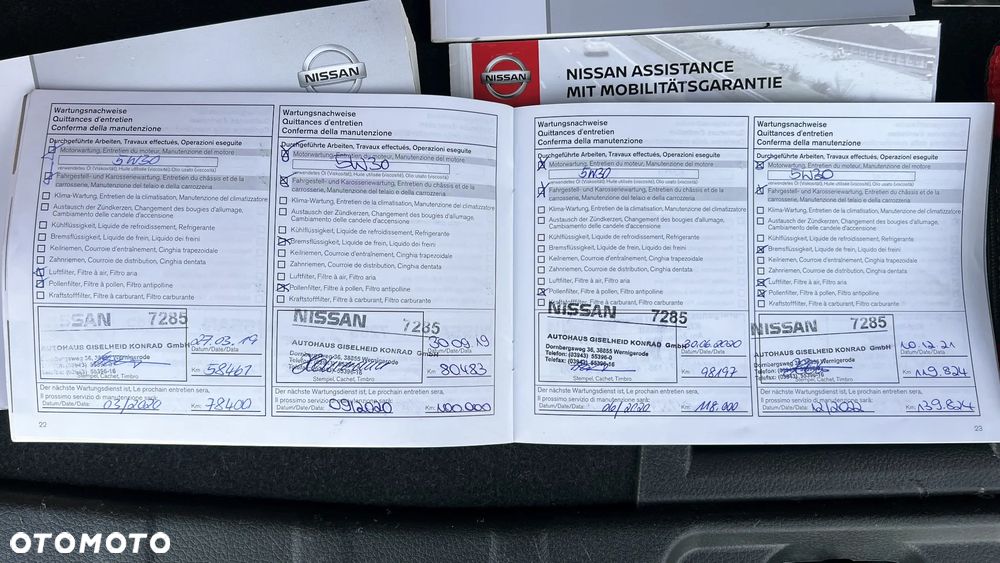 NISSAN
NISSAN
NISSAN ASSISTANCE
MIT MOBILITÄTSGARANTIE
Wartungsnachweise
Quittances d'entretien
Conferma della manutenzione
Durchgeführte Arbeiten, Travaux effectués, Operazioni eseguite
Motorwartung, Entretien du moteur, Manutenzione del motore
5W30
verwendetes Öl (Viskosität), Huile utilisée (viscosité), Olio usato (viscosità)
Fahrgestell- und Karosseriewartung, Entretien du châssis et de la
carrosserie, Manutenzione del telaio e della carrozzeria
Klima-Wartung, Entretien de la climatisation, Manutenzione del climatizzatore
Austausch der Zündkerzen, Changement des bougies d'allumage,
Cambiamento delle candele d'accensione
Kühlflüssigkeit, Liquide de refroidissement, Refrigerante
Bremsflüssigkeit, Liquide de frein, Liquido dei freini
Keilriemen, Courroie d'entraînement, Cinghia trapezoidale
Zahnriemen, Courroie de distribution, Cinghia dentata
Luftfilter, Filtre à air, Filtro aria
Pollenfilter, Filtre à pollen, Filtro antipolline
Kraftstofffilter, Filtre à carburant, Filtro carburante
NISSAN 7285
AUTOHAUS GISELHEID KONRAD GmbH
Dornbergsweg 36, 38855 Wernigerode
27.03.19
Datum/Date/Data:
Km: 58461
Stempel, Cachet, Timbro
Der nächste Wartungsdienst ist, Le prochain entretien sera,
Il prossimo servizio di manutenzione sarà:
Datum/Date/Data: 03/2020 Km: 78400
22
Wartungsnachweise
Quittances d'entretien
Conferma della manutenzione
Durchgeführte Arbeiten, Travaux effectués, Operazioni eseguite
Motorwartung, Entretien du moteur, Manutenzione del motore
5W30
verwendetes Öl (Viskosität), Huile utilisée (viscosité), Olio usato (viscosità)
Fahrgestell- und Karosseriewartung, Entretien du châssis et de la
carrosserie, Manutenzione del telaio e della carrozzeria
Klima-Wartung, Entretien de la climatisation, Manutenzione del climatizzatore
Austausch der Zündkerzen, Changement des bougies d'allumage,
Cambiamento delle candele d'accensione
Kühlflüssigkeit, Liquide de refroidissement, Refrigerante
Bremsflüssigkeit, Liquide de frein, Liquido dei freini
Keilriemen, Courroie d'entraînement, Cinghia trapezoidale
Zahnriemen, Courroie de distribution, Cinghia dentata
Luftfilter, Filtre à air, Filtro aria
Pollenfilter, Filtre à pollen, Filtro antipolline
Kraftstofffilter, Filtre à carburant, Filtro carburante
NISSAN 7285
AUTOHAUS GISELHEID KONRAD GmbH
Dornbergsweg 36, 38855 Wernigerode
30.09.19
Datum/Date/Data:
Km: 80483
Stempel, Cachet, Timbro
Der nächste Wartungsdienst ist, Le prochain entretien sera,
Il prossimo servizio di manutenzione sarà:
Datum/Date/Data: 09/2020 Km: 100.000
Wartungsnachweise
Quittances d'entretien
Conferma della manutenzione
Durchgeführte Arbeiten, Travaux effectués, Operazioni eseguite
Motorwartung, Entretien du moteur, Manutenzione del motore
5W30
verwendetes Öl (Viskosität), Huile utilisée (viscosité), Olio usato (viscosità)
Fahrgestell- und Karosseriewartung, Entretien du châssis et de la
carrosserie, Manutenzione del telaio e della carrozzeria
Klima-Wartung, Entretien de la climatisation, Manutenzione del climatizzatore
Austausch der Zündkerzen, Changement des bougies d'allumage,
Cambiamento delle candele d'accensione
Kühlflüssigkeit, Liquide de refroidissement, Refrigerante
Bremsflüssigkeit, Liquide de frein, Liquido dei freini
Keilriemen, Courroie d'entraînement, Cinghia trapezoidale
Zahnriemen, Courroie de distribution, Cinghia dentata
Luftfilter, Filtre à air, Filtro aria
Pollenfilter, Filtre à pollen, Filtro antipolline
Kraftstofffilter, Filtre à carburant, Filtro carburante
NISSAN 7285
AUTOHAUS GISELHEID KONRAD GmbH
Dornbergsweg 36, 38855 Wernigerode
Telefon: (03943) 55396-0
30.06.2020
Datum/Date/Data:
Km: 98197
Stempel, Cachet, Timbro
Der nächste Wartungsdienst ist, Le prochain entretien sera,
Il prossimo servizio di manutenzione sarà:
Datum/Date/Data: Km: 118.000
Wartungsnachweise
Quittances d'entretien
Conferma della manutenzione
Durchgeführte Arbeiten, Travaux effectués, Operazioni eseguite
Motorwartung, Entretien du moteur, Manutenzione del motore
5W30
verwendetes Öl (Viskosität), Huile utilisée (viscosité), Olio usato (viscosità)
Fahrgestell- und Karosseriewartung, Entretien du châssis et de la
carrosserie, Manutenzione del telaio e della carrozzeria
Klima-Wartung, Entretien de la climatisation, Manutenzione del climatizzatore
Austausch der Zündkerzen, Changement des bougies d'allumage,
Cambiamento delle candele d'accensione
Kühlflüssigkeit, Liquide de refroidissement, Refrigerante
Bremsflüssigkeit, Liquide de frein, Liquido dei freini
Keilriemen, Courroie d'entraînement, Cinghia trapezoidale
Zahnriemen, Courroie de distribution, Cinghia dentata
Luftfilter, Filtre à air, Filtro aria
Pollenfilter, Filtre à pollen, Filtro antipolline
Kraftstofffilter, Filtre à carburant, Filtro carburante
NISSAN 7285
AUTOHAUS GISELHEID KONRAD GmbH
Dornbergsweg 36, 38855 Wernigerode
10.12.21
Datum/Date/Data:
Km: 119.824
Stempel, Cachet, Timbro
Der nächste Wartungsdienst ist, Le prochain entretien sera,
Il prossimo servizio di manutenzione sarà:
Datum/Date/Data: 12/2022 Km: 139.824
23
OTOMOTO